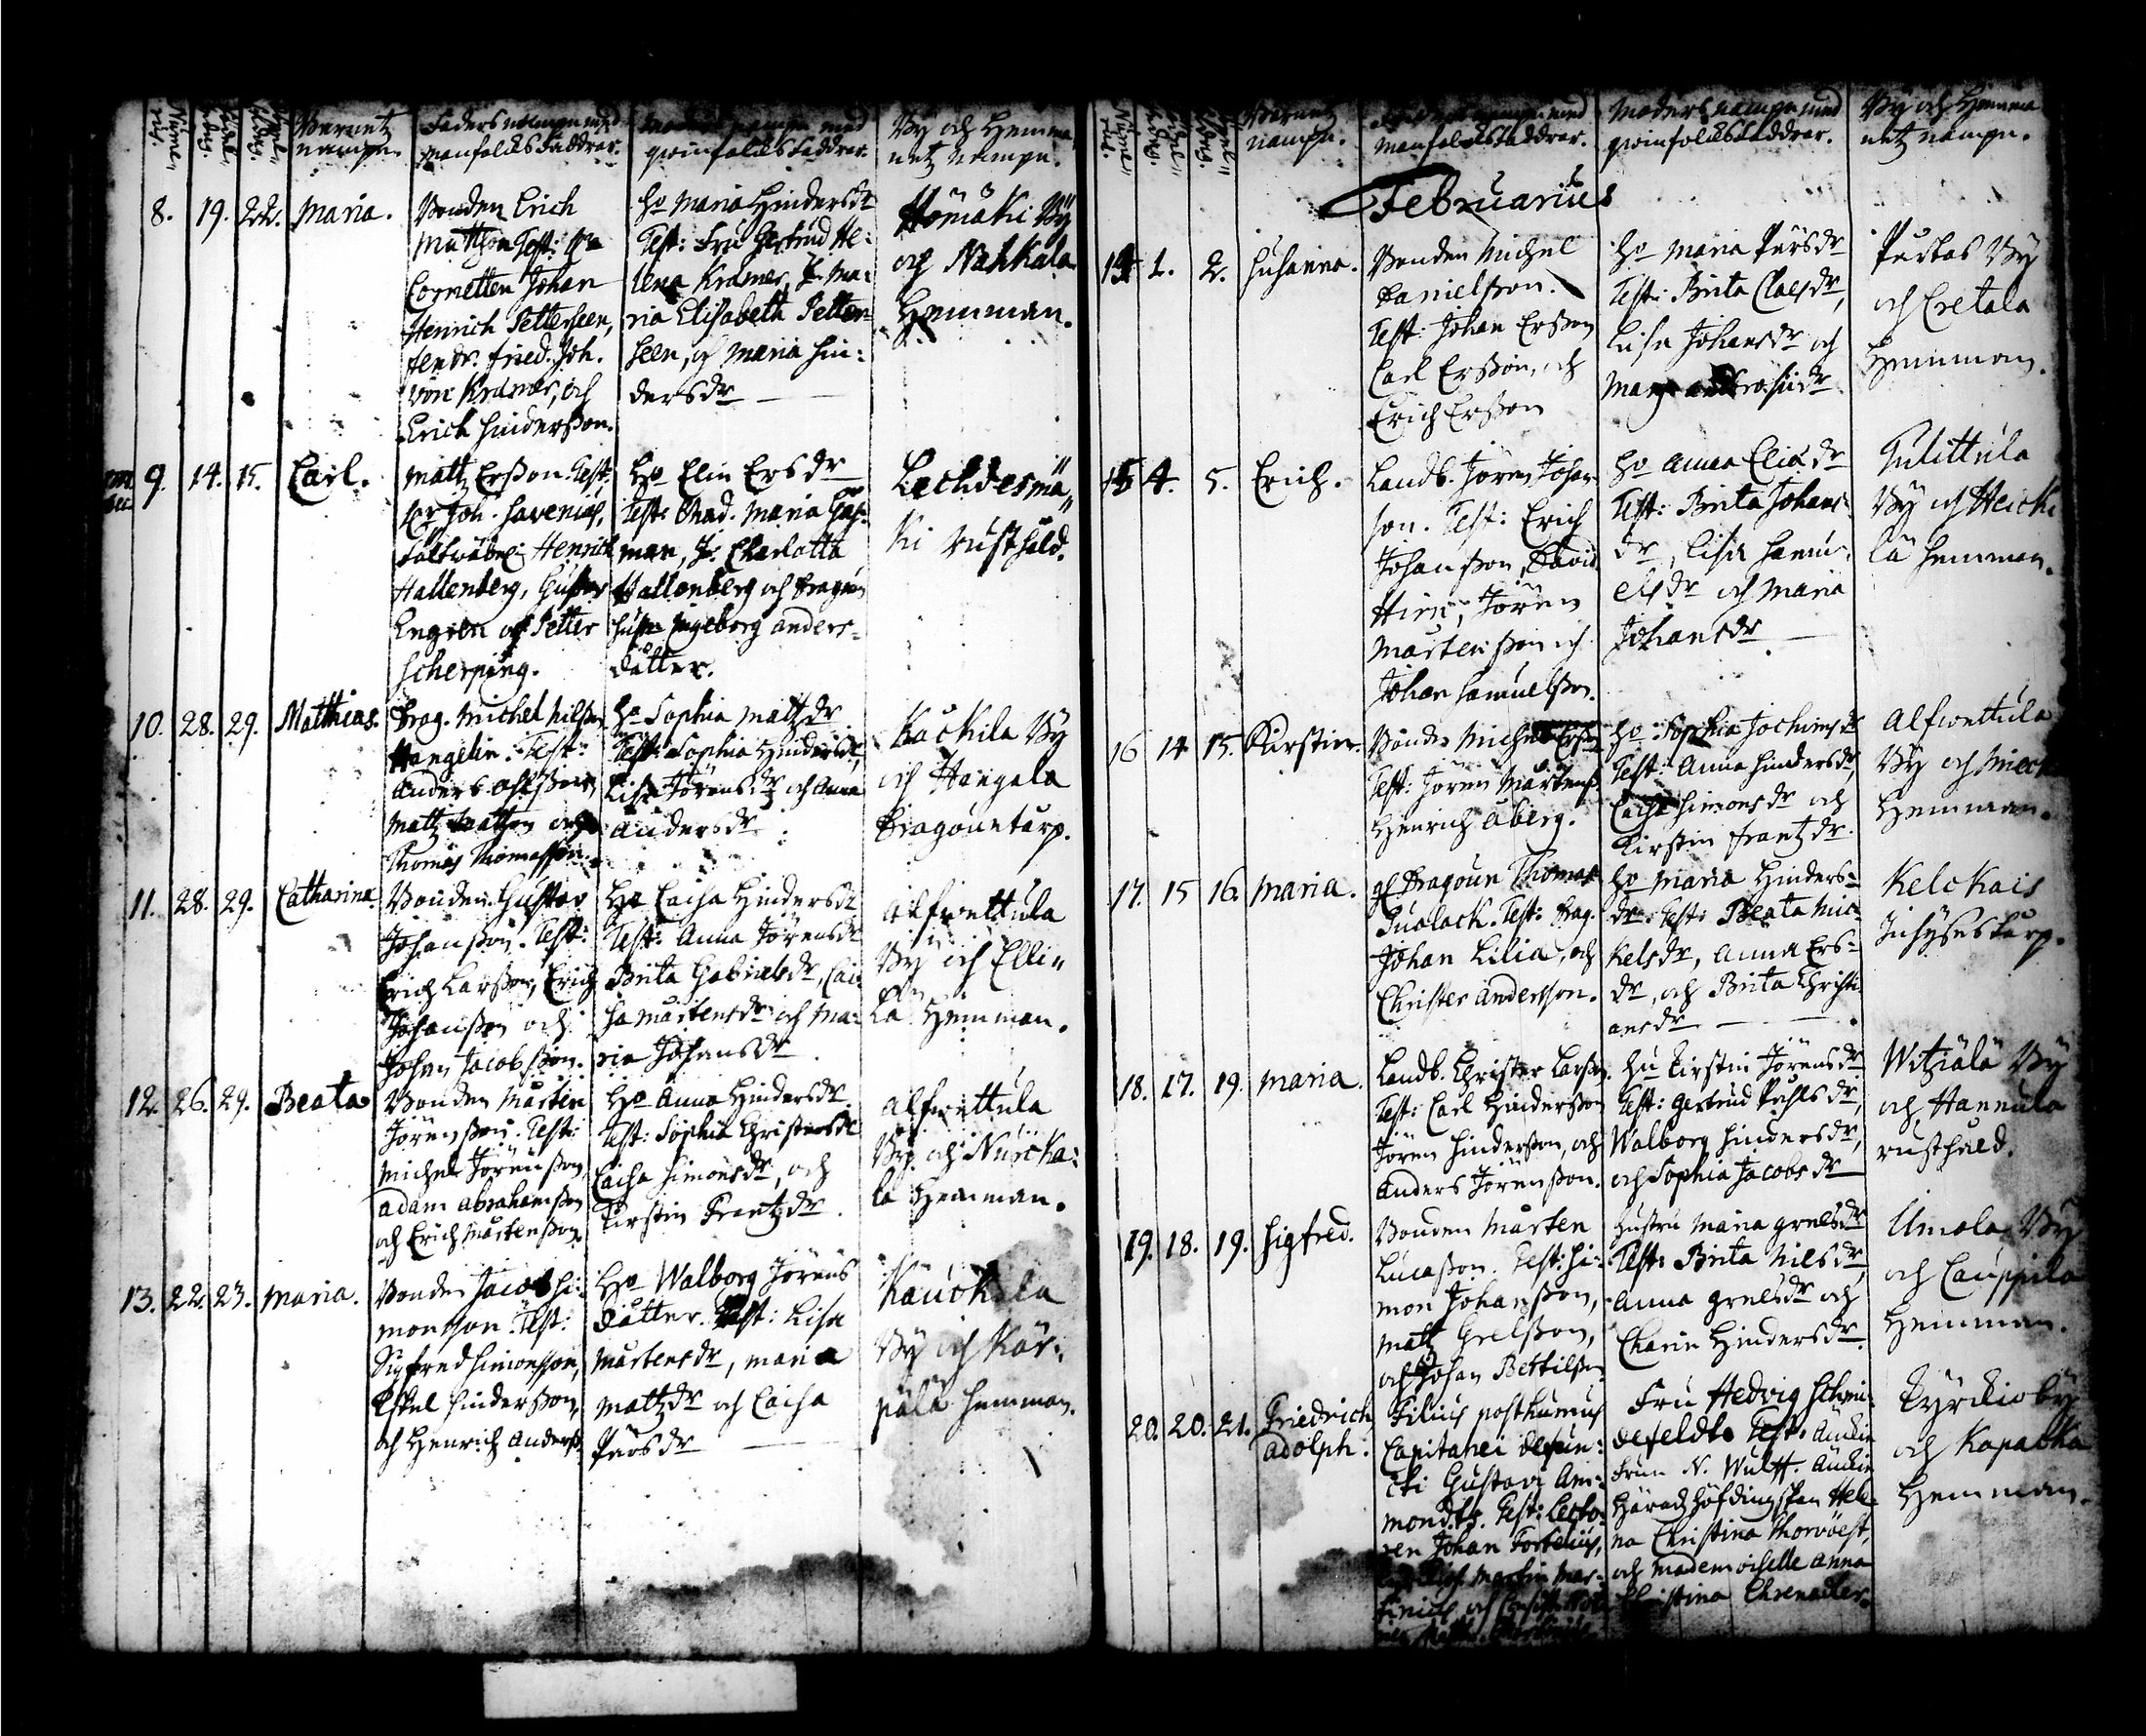 Barnetz
nampn.
Faders nampn med
manfolcksfaddrar.
nampn med
qwinfolcksfaddrar.
By och Hemma
netz nampn.
8. 19. 22. Maria.
Bonden Erich
Mattzon Test: Hr
Cornetten Johan
Henrich Petterseen,
fendr. fried. Joh.
von Kræmer, och
Erich Hindersson.
Ho Maria Hindersdr
Test: Fru Gertrud He:
lena Kræmer, J. Ma:
ria Elisabeth Petter
seen, och Maria Hin:
dersdr
By
och Nahkala
Hemman.
9. 14. 15. Carl.
Matz Ersson. Test:
Hr Joh. Savenius,
Henrich
Hallenberg, Gustav
Engren och Petter
Scherping.
Ho Elin Ersdr
Test: Mad. Maria
man, Jr Charlotta
Hallenberg och Dragoun
hustr Ingeborg Anders-
dåtter.
Lechdesmä„
ki Rusthåld.
10. 28. 29. Matthias.
Drag. Michel Nilsson
Hangelin. Test:
Anders
Mattz
Thomas Thomasson.
Ho Sophia Mattzdr
Test: Sophia Hindersdr,
Lisa Jörensdr och Anna
Andersdr
Kackila By
och Hangala
Dragountorp.
11. 28. 29. Catharina.
Bonden Gustav
Johansson. Test:
Erich Larsson, Erich
Johansson och
Johan Jacobsson.
Ho Caisa Hindersdr
Test: Anna Jörensdr
Brita Gabrielsdr, Cai:
sa Mårtensdr och Ma:
ria Johansdr
Alfwettula
By och Elli„
lä Hemman.
12. 26. 29. Beata
Bonden Mårten
Jörensson. Test:
Michel Jörensson
Adam Abrahamsson
och Erich Mårtensson.
Ho Anna Hindersdr.
Test: Sophia Christersdr
Caisa Simonsdr, och
Kirstin Frantzdr.
Alfwettula
By och Nurcka:
la Hemman.
13. 22. 23. Maria.
Bonden Jacob Si:
monsson. Test:
Sigfred Simonsson,
Eskel Hindersson,
och Henrich Anderss.
Ho Walborg Jörens
dåtter. Test: Lisa
Mårtensdr, Maria
Mattzdr och Caisa
Pärsdr
Kauckola
By och Kör:
pälä Hemman.
Barnetz
nampn.
nampn med
manfolcksfaddrar.
Moders nampn med
qwinfolcksfaddrar.
By och Hemma
netz nampn.
Februarius
1. 2. Susanna.
Bonden Michel
Danielsson.
Test: Johan Ersson
Carl Ersson, och
Erich Ersson
Ho Maria Pärsdr
Test: Brita Claesdr,
Lisa Johansdr och
By
och Eretala
Hemman.
15 4. 5. Erich.
Landb. Jören Johan
son. Test: Erich
Johansson, David
Hirn, Jören
Mårtensson och
Johan Samuelsson.
Ho Anna Elisdr
Test: Brita Johans
dr, Lisa Samu:
elsdr och Maria
Johansdr
Tulittula
By och Heicki
lä Hemman.
16 14 15. Kirstin.
Bonden Michel
Test: Jören Mårtenss.
Henrich Åberg.
Ho Sophia Jochimsdr
Test: Anna Hindersdr,
Caisa Simonsdr och
Kirstin Frantzdr.
Alfwettula
By och
Hemman.
17. 15 16. Maria.
Dragoun Thomas
Test: Drag.
Johan Lilia, och
Christer Andersson.
Ho Maria Hinders-
dr. Test: Beata Mic:
kelsdr, Anna Ers-
dr, och Brita Christi
ansdr
Kelckais
Inhysestorp.
18. 17. 19. Maria.
Landb. Christer Larsson.
Test: Carl Hindersson
Jören Hindersson, och
Anders Jörensson.
Hu Kirstin Jörensdr
Test: Gertrud Påhlsdr,
Walborg Hindersdr,
och Sophia Jacobsdr
Witziälä By
och Hannula
rusthåld.
19. 18. 19. Sigfred.
Bonden Mårten
Lucasson. Test: Si:
mon Johansson,
Matz Grelsson,
och Johan Bertilsson.
Hustru Maria Grelsdr
Test: Brita Nilsdr,
Anna Grelsdr och
Charin Hindersdr.
Umola By
och Cauppila
Hemman.
20. 20. 21. Friedrich
Adolph.
Filius posthumus
Capitanei defun:
cti Gustavi Am:
mondts. Test: Lecto:
ren Johan Forteliüs,
Martin Mar:
tinius och
Fru Hedvig Schmi
defeldt. Test: Änckie
frun N. Wulff. Änckie
Häradzhöfdingskan Hele
na Christina Thorwöest,
och Mademoiselle Anna
Christina Ehrenadler.
Kyrckioby
och Kapatka
Hemman.